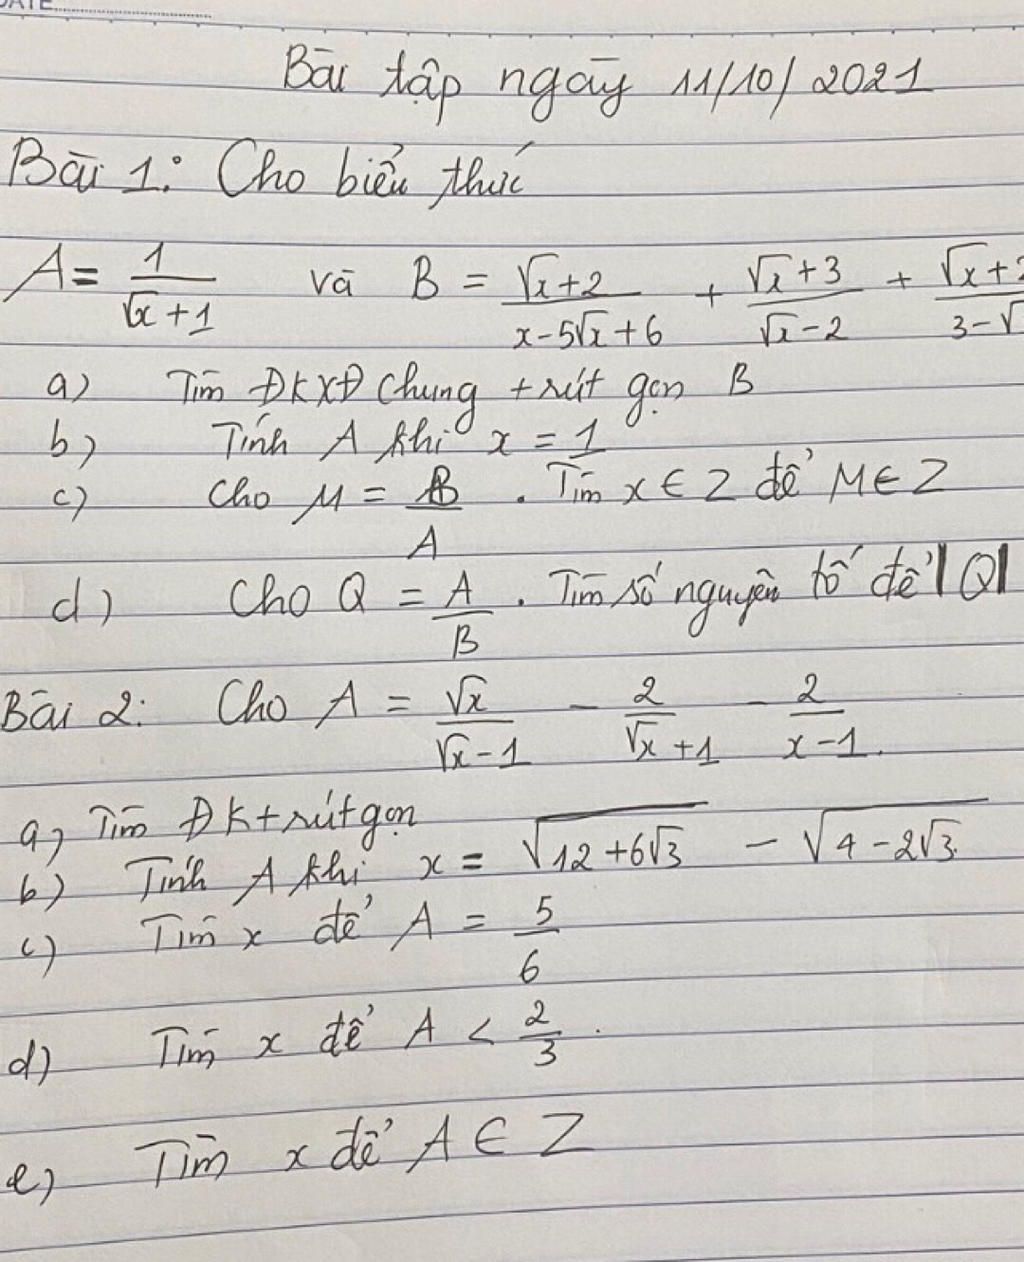 DATE
Bài tập ngày 11/10/2021
Bài 1: Cho biểu thức
A = 1/(√x + 1) và B = (√x + 2)/(x - 5√x + 6) + (√x + 3)/(√x - 2) + (√x + 2)/(3 - √
a) Tìm ĐKXĐ chung + rút gọn B
b) Tính A khi x = 1
c) Cho M = B/A . Tìm x ∈ Z để M ∈ Z
d) Cho Q = A/B . Tìm số nguyên tố để |Q|
Bài 2: Cho A = √x/(√x - 1) - 2/(√x + 1) - 2/(x - 1).
a) Tìm ĐK + rút gọn
b) Tính A khi x = √(12 + 6√3) - √(4 - 2√3).
c) Tìm x để A = 5/6
d) Tìm x để A < 2/3.
e) Tìm x để A ∈ Z